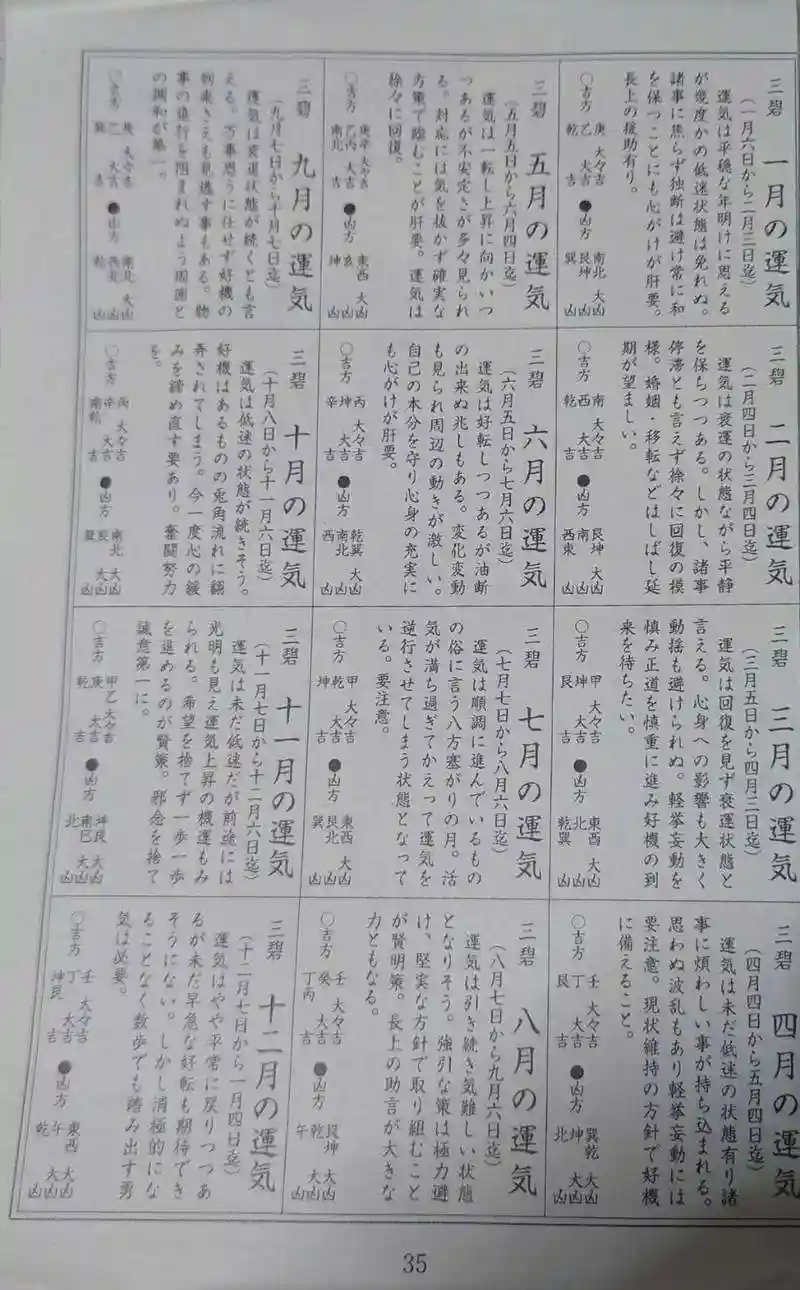 三碧 一月の運気
(一月六日から二月三日迄)
運気は平穏な年明けに思える
が幾度かの低迷状態は免れぬ。
諸事に焦らず独断は避け常に和
を保つことにも心がけが肝要。
長上の援助有り。
○吉方
庚 大々吉
乙 大吉
乾 吉
●凶方
南北 大凶
艮坤 大凶
巽 凶
三碧 二月の運気
(二月四日から三月四日迄)
運気は衰運の状態ながら平静
を保ちつつある。しかし、諸事
停滞とも言えず徐々に回復の模
様。婚姻・移転などはしばし延
期が望ましい。
○吉方
南 大々吉
西 大吉
乾 吉
●凶方
艮坤 大凶
南 大凶
西東 凶
三碧 三月の運気
(三月五日から四月三日迄)
運気は回復を見ず衰運状態と
言える。心身への影響も大きく
動揺も避けられぬ。軽挙妄動を
慎み正道を慎重に進み好機の到
来を待ちたい。
○吉方
甲 大々吉
坤 大吉
艮 吉
●凶方
東西 大凶
北 大凶
乾巽 凶
三碧 四月の運気
(四月四日から五月四日迄)
運気は未だ低迷の状態有り諸
事に煩わしい事が持ち込まれる。
思わぬ波乱もあり軽挙妄動には
要注意。現状維持の方針で好機
に備えること。
○吉方
壬 大々吉
丁 大吉
艮 吉
●凶方
巽乾 大凶
坤 大凶
北 凶
三碧 五月の運気
(五月五日から六月四日迄)
運気は一転し上昇に向かいつ
つあるが不安定さが多々見られ
る。対応には気を抜かず確実な
方策で臨むことが肝要。運気は
徐々に回復。
○吉方
庚辛 大々吉
乙丙 大吉
南北 吉
●凶方
東西 大凶
亥 凶
坤 凶
三碧 六月の運気
(六月五日から七月六日迄)
運気は好転しつつあるが油断
の出来ぬ兆しもある。変化変動
も見られ周辺の動きが激しい。
自己の本分を守り心身の充実に
も心がけが肝要。
○吉方
丙 大々吉
坤 大吉
辛 吉
●凶方
乾巽 大凶
南北 大凶
西 凶
三碧 七月の運気
(七月七日から八月六日迄)
運気は順調に進んでいるもの
の俗に言う八方塞がりの月。活
気が満ち過ぎてかえって運気を
逆行させてしまう状態となって
いる。要注意。
○吉方
甲 大々吉
乾 大吉
坤 吉
●凶方
東西 大凶
艮北 凶
巽 凶
三碧 八月の運気
(八月七日から九月六日迄)
運気は引き続き気難しい状態
となりそう。強引な策は極力避
け、堅実な方針で取り組むこと
が賢明策。長上の助言が大きな
力ともなる。
○吉方
壬 大々吉
癸 大吉
丁丙 吉
●凶方
艮坤 大凶
乾 大凶
午 凶
三碧 九月の運気
(九月七日から十月七日迄)
運気は衰退状態が続くとも言
える。万事思うに任せず好機の
到来さえも見逃す事もある。物
事の進行を阻まれぬよう周囲と
の調和が第一。
○吉方
庚 大々吉
乙 大吉
巽 吉
●凶方
南北 大凶
西 凶
乾 凶
三碧 十月の運気
(十月八日から十一月六日迄)
運気は低迷の状態が続きそう。
好機はあるものの兎角流れに翻
弄されてしまう。今一度心の緩
みを締め直す要あり。奮闘努力
を。
○吉方
丙 大々吉
辛 大吉
南乾 吉
●凶方
南北 大凶
辰 大凶
巽 凶
三碧 十一月の運気
(十一月七日から十二月六日迄)
運気は未だ低迷だが前途には
光明も見え運気上昇の機運もみ
られる。希望を捨てず一歩一歩
を進めるのが賢策。邪念を捨て
誠意第一に。
○吉方
甲乙 大々吉
庚 大吉
乾 吉
●凶方
坤艮 大凶
南巳 大凶
北 凶
三碧 十二月の運気
(十二月七日から一月四日迄)
運気はやや平常に戻りつつあ
るが未だ早急な好転も期待でき
そうにない。しかし消極的にな
ることなく数歩でも踏み出す勇
気は必要。
○吉方
壬 大々吉
丁 大吉
坤艮 吉
●凶方
東西 大凶
午 大凶
乾 凶
35